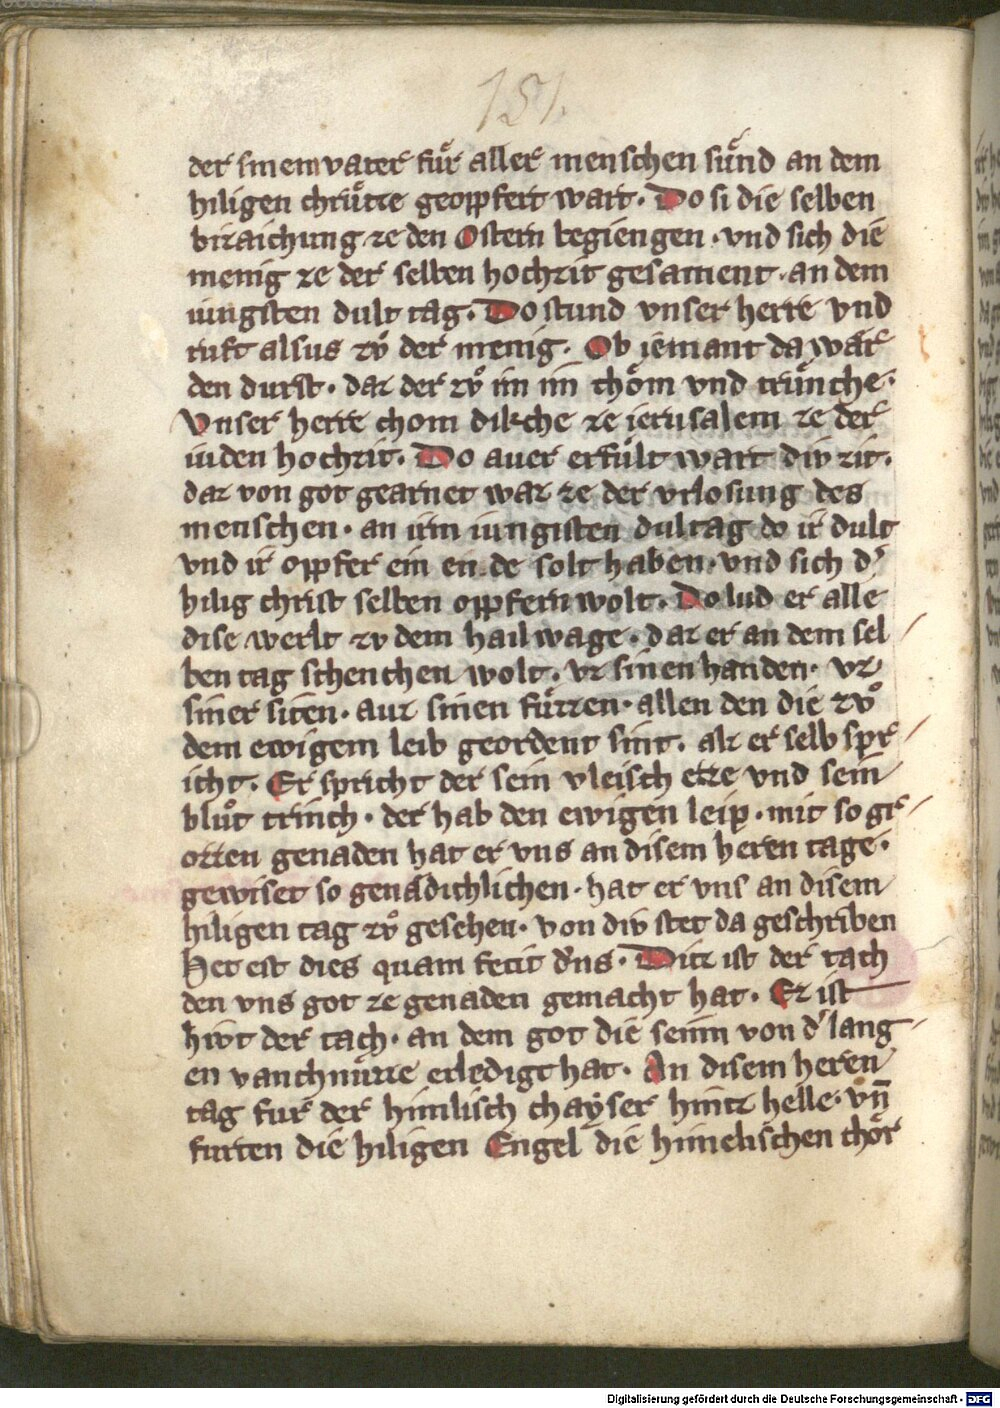 151.
der sinem vater fuͤr aller menschen suͤnd an dem
hiligen chruͤtze geoppfert wart. Do si die selben
bizaichung ze den Ostern begiengen. vnd sich die
menig ze der selben hochzit gesament. an dem
iungsten dult tag. Do stund vnser herre vnd
ruft alsus zuͦ der menig. Ob iemant da waͤr
den durst. daz der zuͦ im im choͤm vnd trunche.
Vnser herre chom dikche ze ierusalem ze der
iuden hochzit. Do auer erfuͤlt wart div zit.
daz von got gearnet waz ze der vrlosung des
menschen. an irm iungisten dultag do ir dult
vnd ir oppfer ein en de solt haben. vnd sich d'
hilig christ selben oppfern wolt. Do lud er alle
dise werlt zv dem hailwage. daz er an dem sel
ben tag schenchen wolt. vz sinen handen. vz
siner siten. auz sinen fuͤzzen. allen den die zuͦ
dem ewigem leib geordent sint. alz er selb spr
icht. Er spricht der sein vleisch ezze vnd sein
bluͦt trinch. der hab den ewigen leip. mit so gr
ozzen genaden hat er vns an disem heren tage.
gewiset so genaͤdichlichen. hat er vns an disem
hiligen tag zuͦ gesehen. von div stet da geschriben
Hec est dies quam fecit d'ns. Ditz ist der tach
den vns got ze genaden gemacht hat. Ez ist
hivt der tach. an dem got die seinn von d' lang
en vanchnuͤzze erledigt hat. An disem heren
tag fur der himlisch chayser hintz helle. vn̄
furten die hiligen Engel die himelischen choͤr
Digitalisierung gefördert durch die Deutsche Forschungsgemeinschaft - DFG